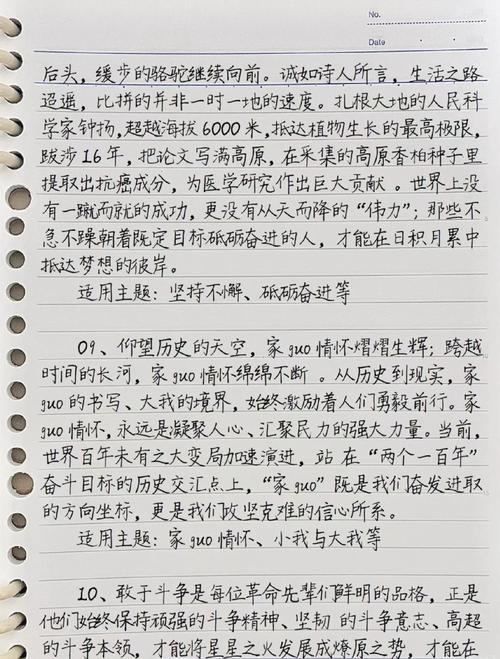 No.
Date
后头，缓步的骆驼继续向前。诚如诗人所言，生活之路
迢遥，比拼的并非一时一地的速度。扎根大地的人民科
学家钟扬，超越海拔6000米，抵达植物生长的最高极限，
跋涉16年，把论文写满高原，在采集的高原香柏种子里
提取出抗癌成分，为医学研究作出巨大贡献。世界上没
有一蹴而就的成功，更没有从天而降的“伟力”；那些不
急不躁朝着既定目标砥砺奋进的人，才能在日积月累中
抵达梦想的彼岸。
适用主题：坚持不懈、砥砺奋进等
09、仰望历史的天空，家guo情怀熠熠生辉；跨越
时间的长河，家guo情怀绵绵不断。从历史到现实，家
guo的书写、大我的境界，始终激励着人们勇毅前行。家
guo情怀，永远是凝聚人心、汇聚民力的强大力量。当前，
世界百年未有之大变局加速演进，站在“两个一百年”
奋斗目标的历史交汇点上，“家guo”既是我们奋发进取
的方向坐标，更是我们攻坚克难的信心所系。
适用主题：家guo情怀、小我与大我等
10、敢于斗争是每位革命先辈们鲜明的品格，正是
他们始终保持顽强的斗争精神、坚韧的斗争意志、高超
的斗争本领，才能将星星之火发展成燎原之势，才能在